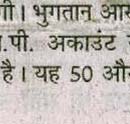 गी। भुगतान आर
.पी. अकाउंट
है। यह 50 औ